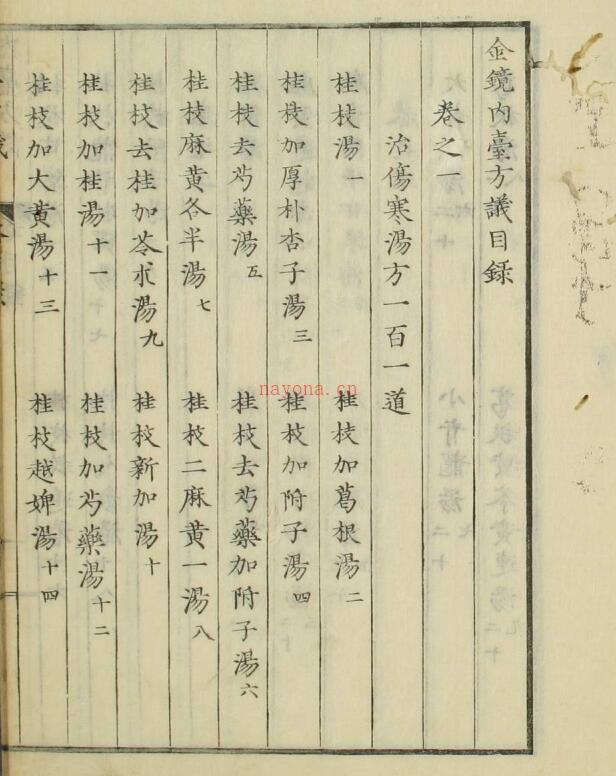 金鏡內臺方議目錄
卷之一
治傷寒湯方一百一道
桂枝湯一 桂枝加葛根湯二
桂枝加厚朴杏子湯三 桂枝加附子湯四
桂枝去芍藥湯五 桂枝去芍藥加附子湯六
桂枝麻黃各半湯七 桂枝二麻黃一湯八
桂枝去桂加苓朮湯九 桂枝新加湯十
桂枝加桂湯十一 桂枝加芍藥湯十二
桂枝加大黃湯十三 桂枝越婢湯十四
nayona.cn